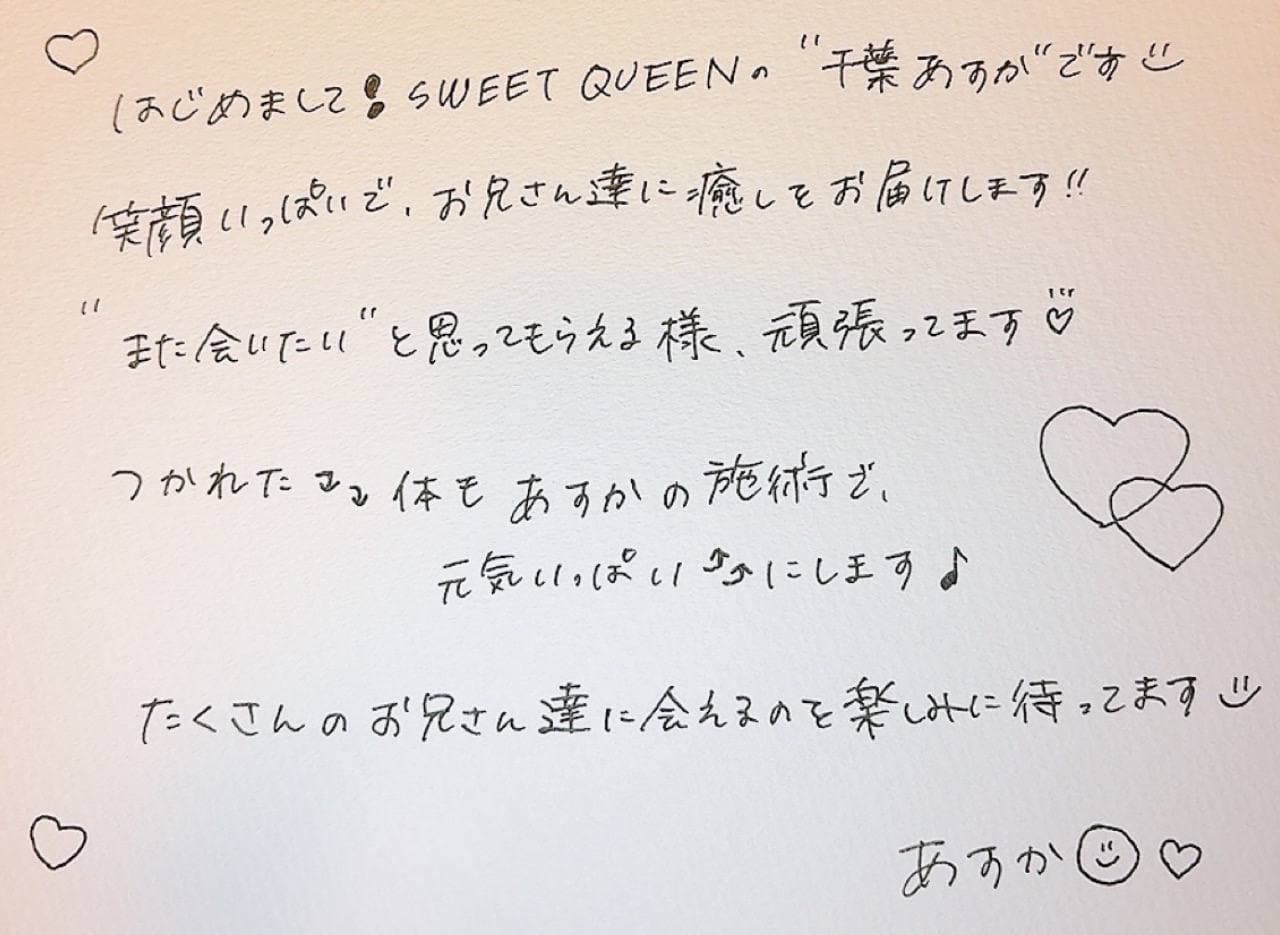 はじめまして❢SWEET QUEENの"千葉あすか"です
笑顔いっぱいで、お兄さん達に癒しをお届けします!!
"また会いたい"と思ってもらえる様、頑張ってます♡
つかれた⤵⤵体もあすかの施術で、
元気いっぱい⤴⤴にします♪
たくさんのお兄さん達に会えるのを楽しみに待ってます
あすか☺♡